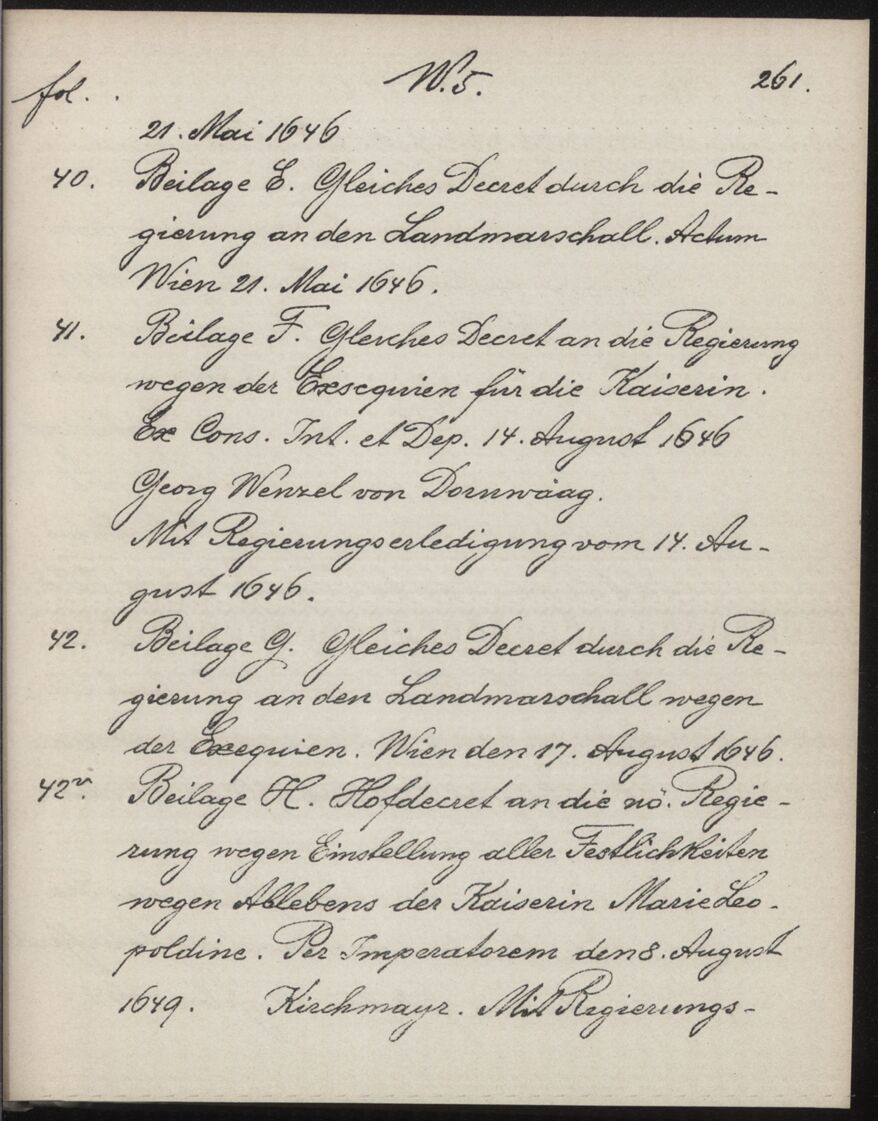 fol. . W.5. 261.
21. Mai 1646
40. Beilage E. Gleiches Decret durch die Re-
gierung an den Landmarschall. Actum
Wien 21. Mai 1646.
41. Beilage F. Gleiches Decret an die Regierung
wegen der Exsequien für die Kaiserin.
Ex Cons. Int. et Dep. 14. August 1646
Georg Wenzel von Dornwäag.
Mit Regierungserledigung vom 14. Au-
gust 1646.
42. Beilage G. Gleiches Decret durch die Re-
gierung an den Landmarschall wegen
der Exequien. Wien den 17. August 1646.
42v. Beilage H. Hofdecret an die nö. Regie-
rung wegen Einstellung aller Festlichkeiten
wegen Ablebens der Kaiserin Marie Leo-
poldine. Per Imperatorem den 8. August
1649. Kirchmayr. Mit Regierungs-